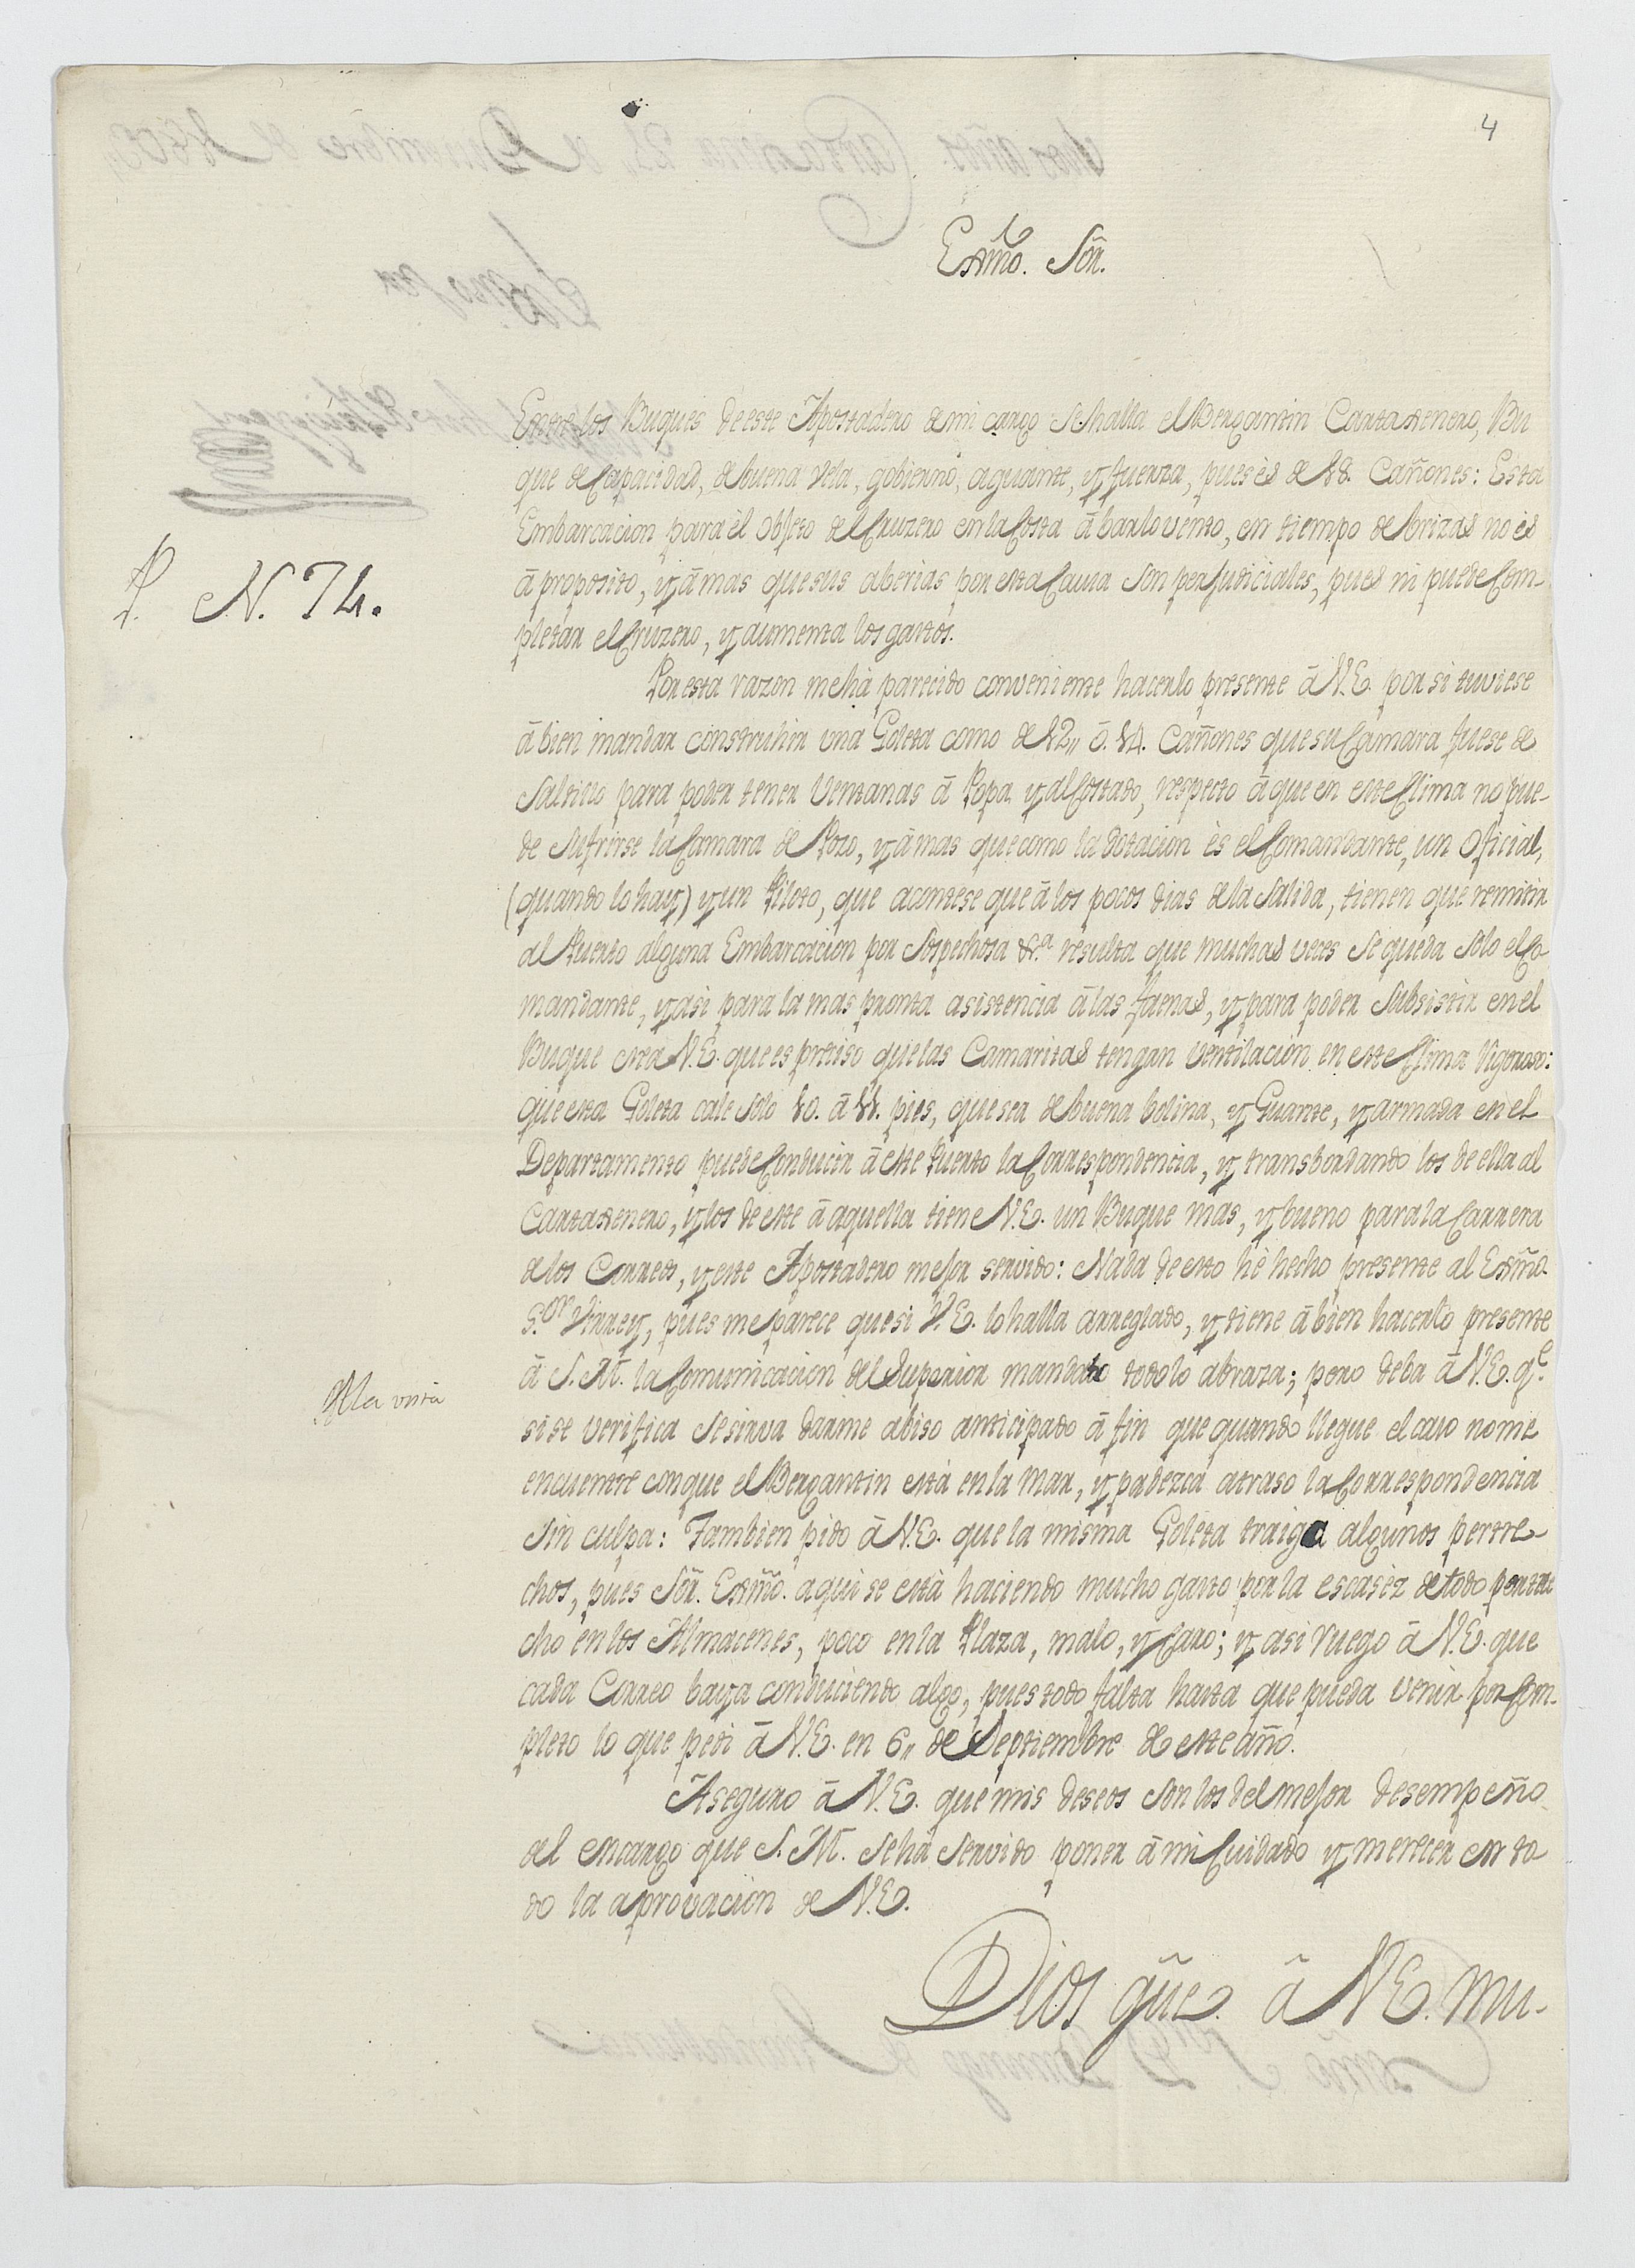 4
Exmo. Sõr.
Entre los Buques de este Apostadero de mi cargo se halla el Bergantin Cartaxenero, Bu
que de Capacidad, de buena vela, gobierno, aguante, y fuerza, pues ès de 18. Cañones: Esta
Embarcacion para èl Objeto del Cruzero en la Costa â barlovento, en tiempo de brizas no ès
â proposito, y â mas que sus aberias por esta Causa son perjudiciales, pues ni puede Com-
pletar el Cruzero, y aumenta los gastos.
P. N. 74.
Por esta razon me hà parecido conveniente hacerlo presente â V.E. por si tuviese
â bien mandar construhir una Goleta como de 12,, ô. 14. Cañones que su Camara fuese de
Saltillo para poder tener Ventanas â Popa y al Costado, respecto â que en este Clima no pue-
de sufrirse la Camara de Pozo, y â mas que como la dotacion ès el Comandante, un Oficial,
(quando lo hay) y un Piloto, que acontese que â los pocos dias de la Salida, tienen que remitir
al Puerto alguna Embarcacion por Sospechosa &.a resulta que muchas veces se queda Solo el Co-
mandante, y asi para la mas pronta asistencia â las faenas, y para poder Subsistir en el
Buque crea V.E. que es preciso que las Camaritas tengan ventilacion en este Clima Vigoroso:
que esta Goleta cale Solo 10. â 11. pies, que sea de buena bolina, y Guante, y armada en el
Departamento puede Conducir â este Puerto la Correspondencia, y transbordando los de ella al
Cartaxenero, y los de este â aquella tiene V.E. un Buque mas, y bueno para la Carrera
de los Correos, y este Apostadero mejor servido: Nada de esto hè hecho presente al Exmõ.
S.or Virrey, pues me parece que si V.E. lo halla arreglado, y tiene â bien hacerlo presente
â S.M. la Comunicacion del Superior mandato todo lo abraza; pero deba â V.E. q.e
A la vista
si se verifica se sirva darme abiso anticipado â fin que quando llegue el caso no me
encuentre con que el Bergantin està en la Mar, y padezca atraso la Correspondencia
Sin culpa: Tambien pido â V.E. que la misma Goleta traiga algunos pertre-
chos, pues Sõr. Exmõ. aqui se està haciendo mucho gasto por la escasèz de todo pertre
cho en los Almacenes, poco en la Plaza, malo, y Caro; y asi ruego â V.E. que
cada Correo baya conduciendo algo, pues todo falta hasta que pueda venir por Com-
pleto lo que pedi â V.E. en 6,, de Septiembre de este año.
Aseguro â V.E. que mis deseos son los del mejor desempeño
al encargo que S.M. se hà Servido poner â mi Cuidado y merecer en to
do la aprovacion de V.E.
Dios gũe. â V.E. mu-